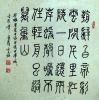 朝辭白帝彩
雲間千里江
陵一日還兩
岸猿聲啼不
住輕舟已過
萬重山